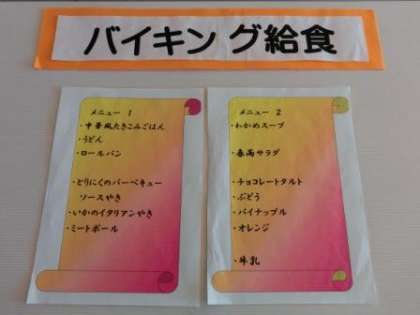 バイキング給食
メニュー 1
・中華風たきこみごはん
・うどん
・ロールパン
・とりにくのバーベキュー
ソースやき
・いかのイタリアンやき
・ミートボール
メニュー 2
・わかめスープ
・春雨サラダ
・チョコレートタルト
・ぶどう
・パイナップル
・オレンジ
・牛乳